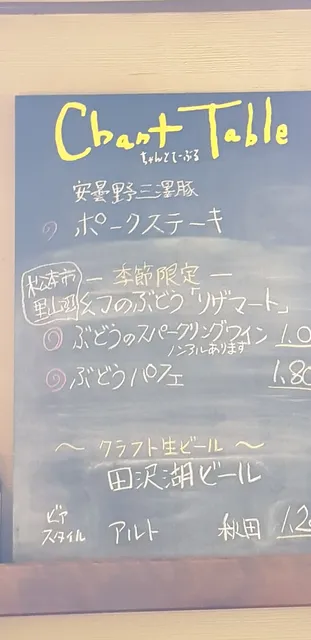 Chant Table
ちゃんとてーぶる
安曇野三澤豚
ポークステーキ
松本市
里山辺
ー 季節限定 ー
幻のぶどう「リザマート」
ぶどうのスパークリングワイン 1.0
ノンアルあります
ぶどうパフェ 1.80
〜 クラフト生ビール 〜
田沢湖ビール
ビア
スタイル
アルト 秋田 1.2